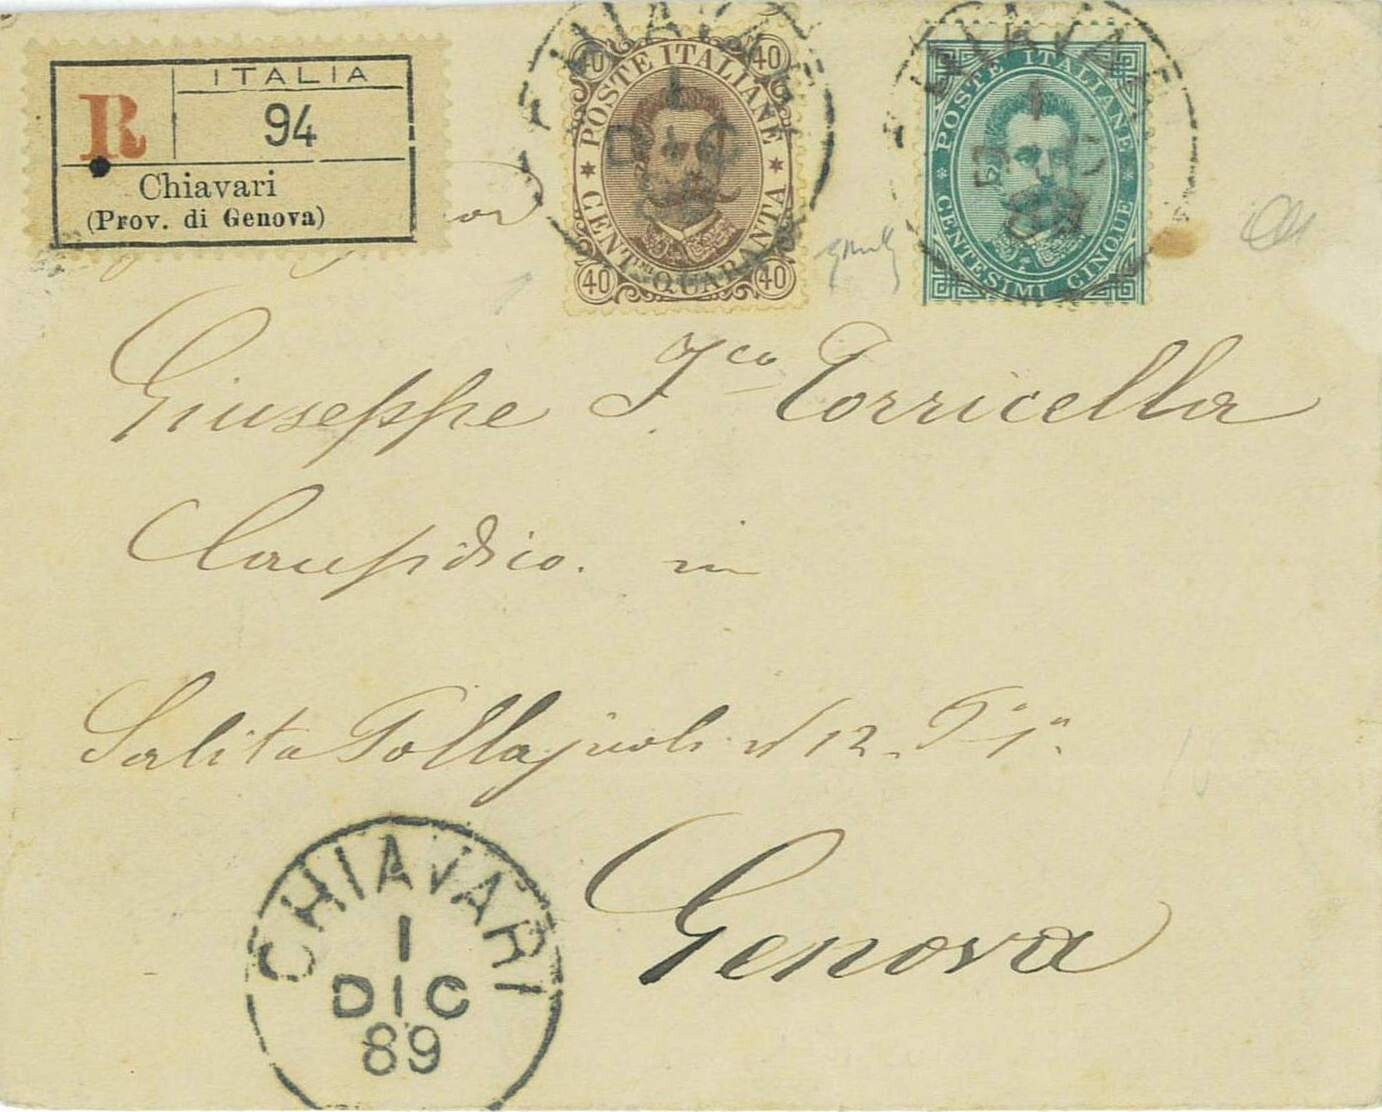 R ITALIA
94
Chiavari
(Prov. di Genova)
CHIAVARI
1
DIC
89
40 POSTE ITALIANE 40
40 CENT.MI QUARANTA 40
CHIAVARI
1
DIC
89
POSTE ITALIANE
CENTESIMI CINQUE
Giuseppe Fco Torricella
Causidico. in
Salita Pollajuoli N 12. P° 1°
Genova
CHIAVARI
1
DIC
89